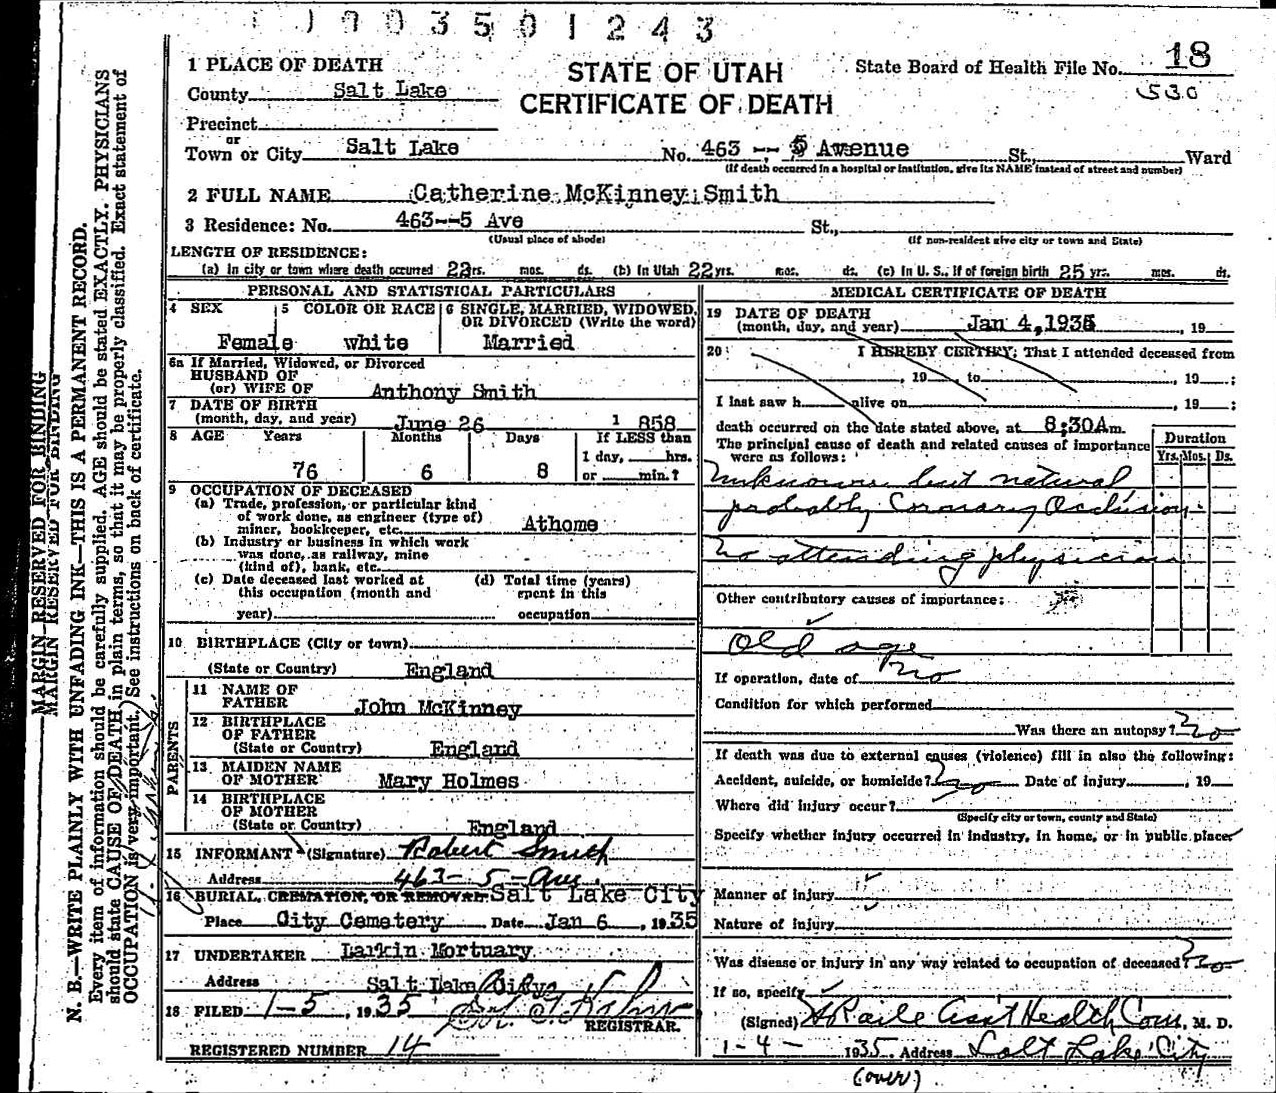 1903501243
18
530
1 PLACE OF DEATH
STATE OF UTAH
CERTIFICATE OF DEATH
State Board of Health File No.
County Salt Lake
Precinct
or
Town or City Salt Lake No. 463 -- 5 Avenue St., Ward
(If death occurred in a hospital or institution, give its NAME instead of street and number)
2 FULL NAME Catherine McKinney Smith
3 Residence: No. 463--5 Ave St.,
(Usual place of abode) (If non-resident give city or town and State)
LENGTH OF RESIDENCE:
(a) In city or town where death occurred 22 yrs. mos. ds. (b) In Utah 22 yrs. mos. ds. (c) In U. S., if of foreign birth 25 yrs. mos. ds.
PERSONAL AND STATISTICAL PARTICULARS
4 SEX 5 COLOR OR RACE 6 SINGLE, MARRIED, WIDOWED, OR DIVORCED (Write the word)
Female white Married
6a If Married, Widowed, or Divorced
HUSBAND OF
(or) WIFE OF Anthony Smith
7 DATE OF BIRTH
(month, day, and year) June 26 1 858
8 AGE Years Months Days If LESS than
1 day, hrs.
76 6 8 or min.?
9 OCCUPATION OF DECEASED
(a) Trade, profession, or particular kind
of work done, as engineer (type of)
miner, bookkeeper, etc. Athome
(b) Industry or business in which work
was done, as railway, mine
(kind of), bank, etc.
(c) Date deceased last worked at (d) Total time (years)
this occupation (month and spent in this
year) occupation
10 BIRTHPLACE (City or town)
(State or Country) England
PARENTS
11 NAME OF
FATHER John McKinney
12 BIRTHPLACE
OF FATHER
(State or Country) England
13 MAIDEN NAME
OF MOTHER Mary Holmes
14 BIRTHPLACE
OF MOTHER
(State or Country) England
15 INFORMANT (Signature) Robert Smith
Address 463- 5- Ave.
16 BURIAL, CREMATION, OR REMOVAL Salt Lake City
Place City Cemetery Date Jan 6, 1935
17 UNDERTAKER Larkin Mortuary
Address Salt Lake City
18 FILED 1-5, 1935
REGISTRAR.
REGISTERED NUMBER 14
MEDICAL CERTIFICATE OF DEATH
19 DATE OF DEATH
(month, day, and year) Jan 4, 1935, 19
20 I HEREBY CERTIFY: That I attended deceased from
, 19 , to , 19 ;
I last saw h alive on , 19 ;
death occurred on the date stated above, at 8:30Am.
The principal cause of death and related causes of importance Duration
were as follows: Yrs. Mos. Ds.
Unknown but natural
probably Coronary Occlusion
no attending physician
Other contributory causes of importance:
Old age
If operation, date of no
Condition for which performed
Was there an autopsy? no
If death was due to external causes (violence) fill in also the following:
Accident, suicide, or homicide? no Date of injury , 19
Where did injury occur?
(Specify city or town, county and State)
Specify whether injury occurred in industry, in home, or in public place
Manner of injury
Nature of injury
Was disease or injury in any way related to occupation of deceased? no
If so, specify
(Signed) Asst Health Com, M. D.
1-4- 1935. Address Salt Lake City
(over)
MARGIN RESERVED FOR BINDING
MARGIN RESERVED FOR BINDING
N. B.—WRITE PLAINLY WITH UNFADING INK—THIS IS A PERMANENT RECORD.
Every item of information should be carefully supplied. AGE should be stated EXACTLY. PHYSICIANS
should state CAUSE OF DEATH in plain terms, so that it may be properly classified. Exact statement of
OCCUPATION is very important. See instructions on back of certificate.